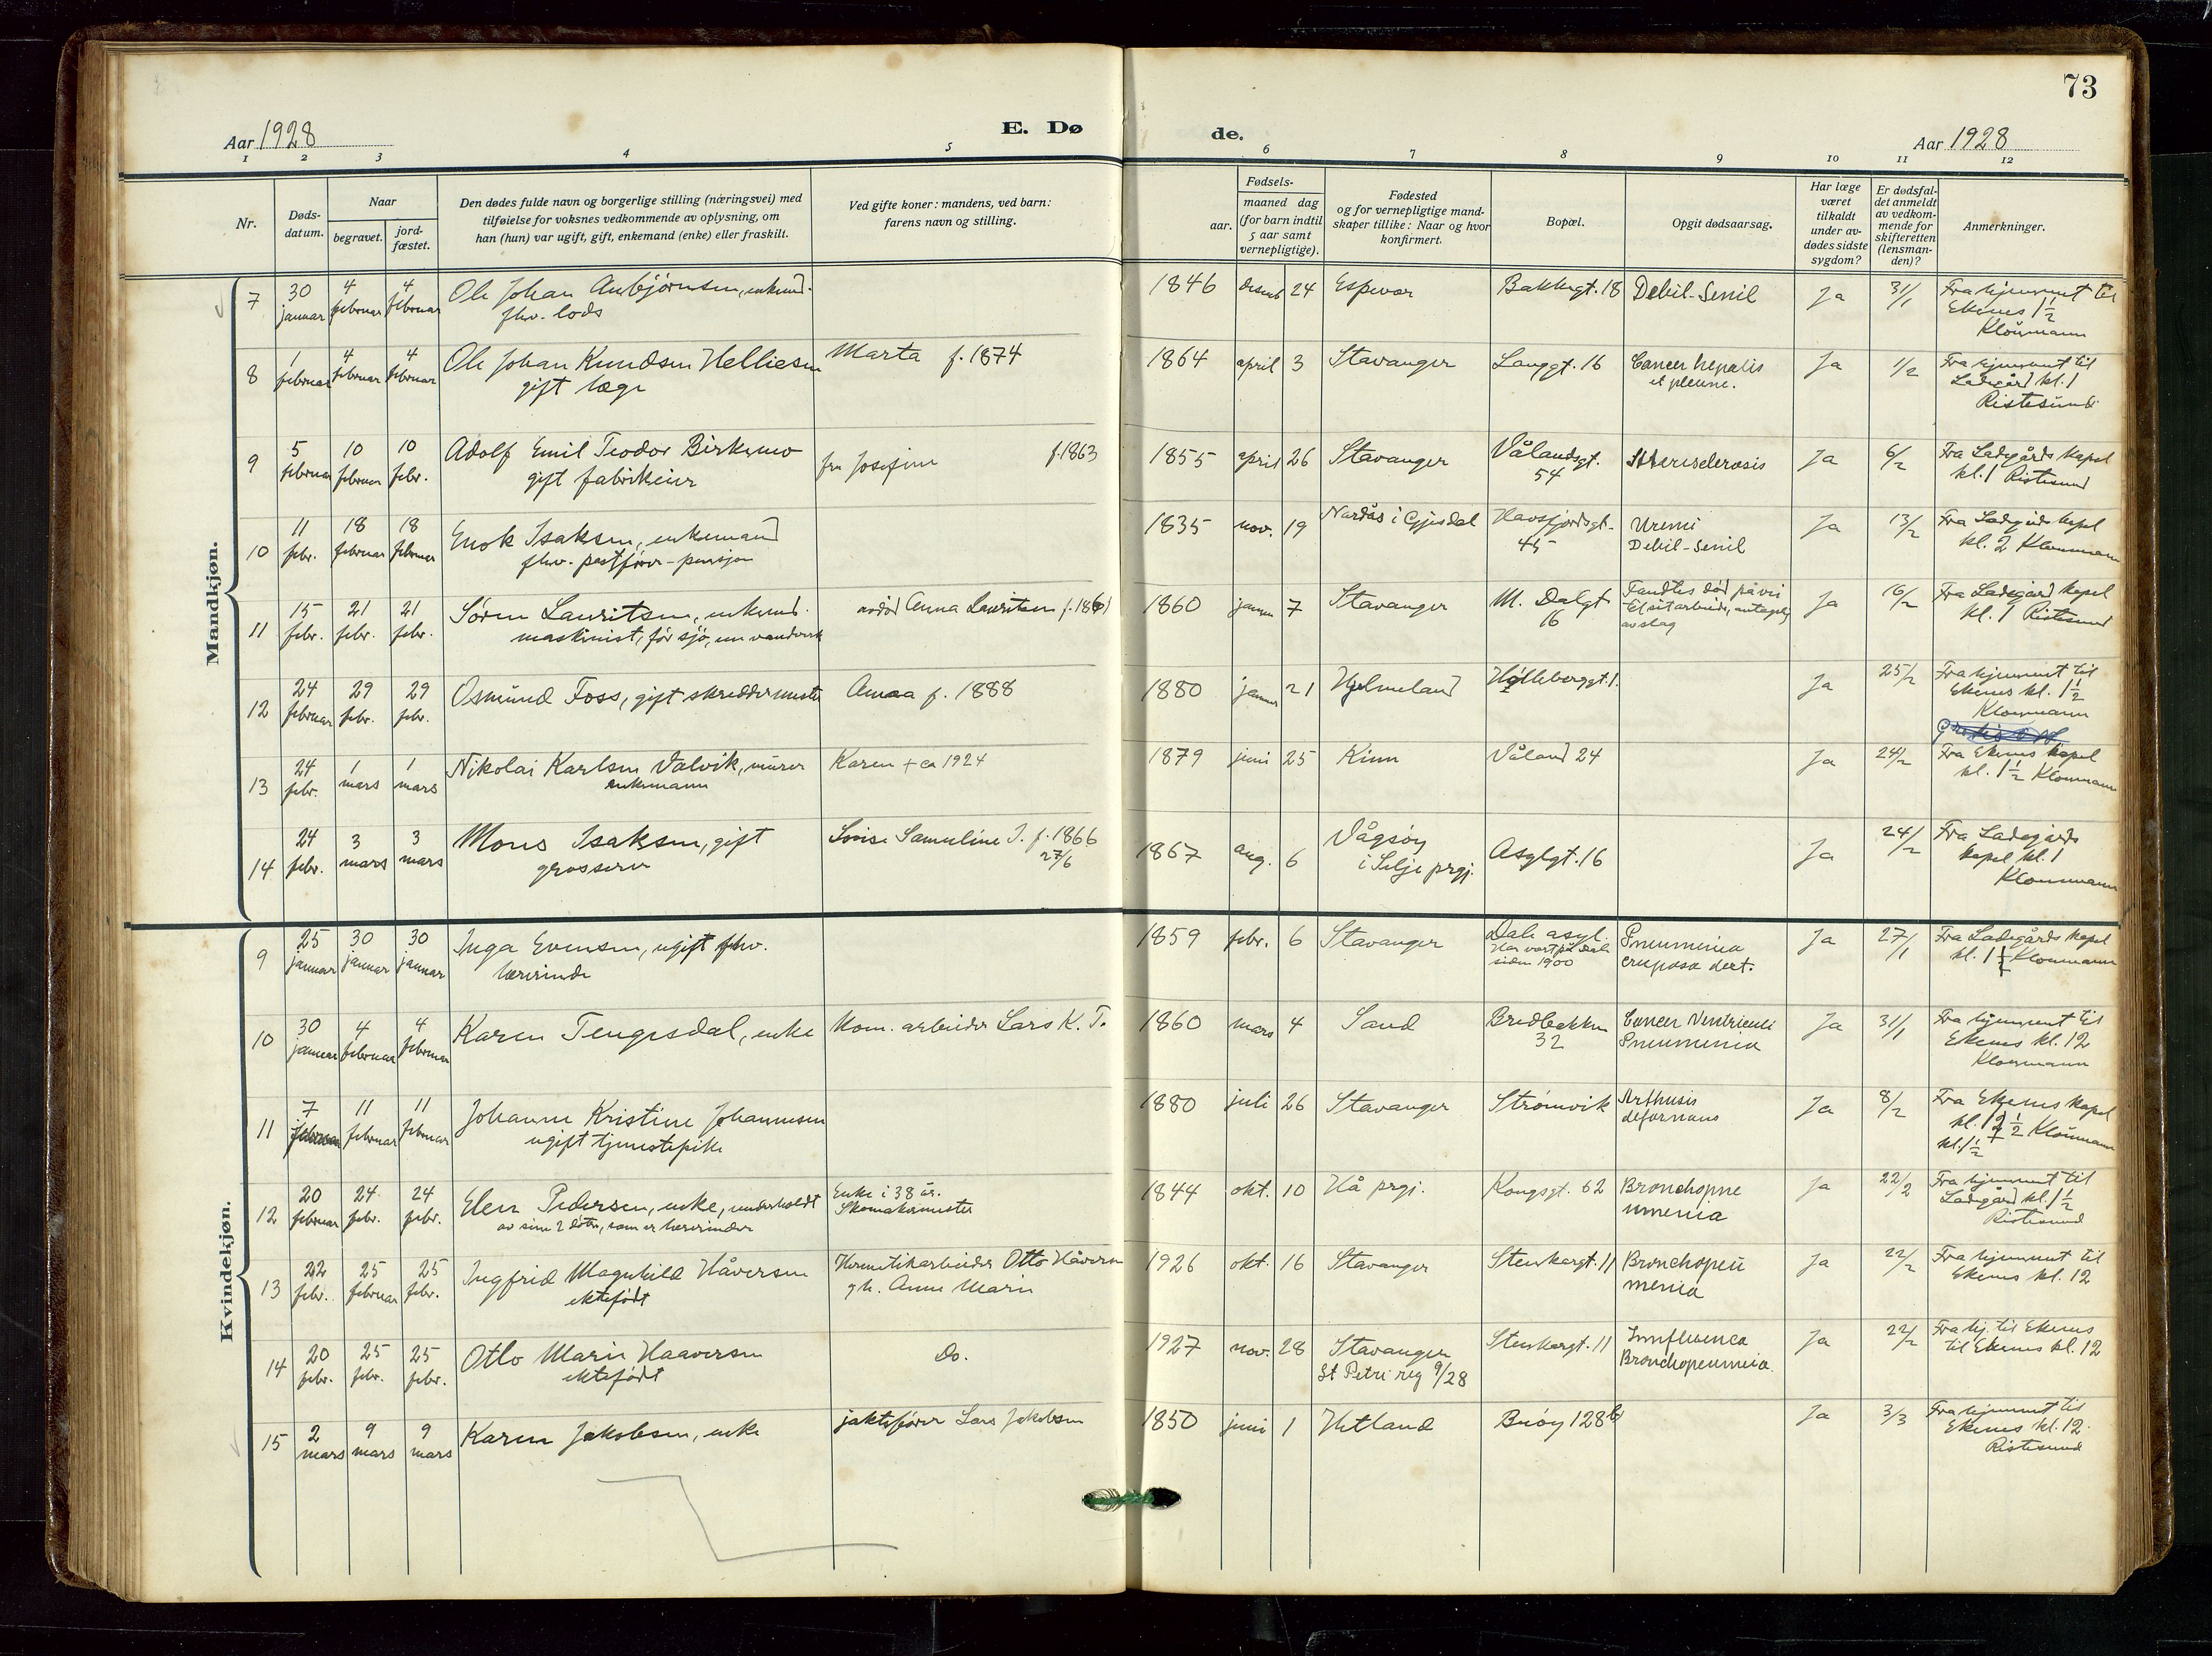 73
Aar 1928
E. Dø
de.
Aar 1928
1 2 3 4 5 6 7 8 9 10 11 12
Nr.
Døds-
datum.
Naar
begravet.
jord-
fæstet.
Den dødes fulde navn og borgerlige stilling (næringsvei) med
tilføielse for voksnes vedkommende av oplysning, om
han (hun) var ugift, gift, enkemand (enke) eller fraskilt.
Ved gifte koner: mandens, ved barn:
farens navn og stilling.
aar.
Fødsels-
maaned dag
(for barn indtil
5 aar samt
vernepligtige).
Fødested
og for vernepligtige mand-
skaper tillike: Naar og hvor
konfirmert.
Bopæl.
Opgit dødsaarsag.
Har læge
været
tilkaldt
under av-
dødes sidste
sygdom?
Er dødsfal-
det anmeldt
av vedkom-
mende for
skifteretten
(lensman-
den)?
Anmerkninger.
Mandkjøn.
7 30 4 4 Ole Johan Aubjørnsen, enkemd. 1846 desemb 24 Espevær Bakkegt. 18 Debil-Senil Ja 31/1 Fra hjemmet til
januar februar februar fhv. lods Ekenes 1 1/2
Kloumann
8 1 4 4 Ole Johan Knudsen Helliesen Marta f. 1874 1864 april 3 Stavanger Langgt. 16 Cancer hepatis Ja 1/2 Fra hjemmet til
februar februar februar gift læge et pleurae. Ladegård kl. 1
Ristesund
9 5 10 10 Adolf Emil Teodor Birkemo fru Josefine f. 1863 1855 april 26 Stavanger Vålandsgt. Ja 6/2 Fra Ladegårds kapel
februar februar febr. gift fabrikeier 54 kl. 1 Ristesund
10 11 18 18 Enok Isaksen, enkemand 1835 nov. 19 i Gjesdal Havsfjordsgt. Uremi Ja 13/2 Fra Ladegårds kapel
febr. februar februar fhv. postfører-pensjon 45 Debil-Senil kl. 2 Kloumann
11 15 21 21 Søren Lauritsen, enkemd. Anna Lauritsen 1860 januar 7 Stavanger M. Dalgt Fandtes død på vei Ja 16/2 Fra Ladegård kapel
febr. febr. febr. maskinist, før sjø, nu vandverk 16 til sit arbeide, antagelig kl. 1 Ristesund
av slag
12 24 29 29 Osmund Foss, gift skreddermester Anna f. 1888 1880 januar 21 Hjelmeland Hølleberggt. 1. Ja 25/2 Fra hjemmet til
februar febr. febr. Ekenes kl. 1 1/2
Kloumann
13 24 1 1 Nikolai Karlsen Valvik, murer Karen + ca 1924 1879 juni 25 Kinn Våland 24 Ja 24/2 Fra Ekenes kapel
febr. mars mars enkemann kl. 1 1/2 Kloumann
14 24 3 3 Mons Isaksen, gift Lovise Samuline I. f. 1866 1867 aug. 6 Vågsøy Asylgt. 16 Ja 24/2 Fra Ladegårds
febr. mars mars grosserer 27/6 i Selje prgj. kapel kl. 1
Kloumann
Kvindekjøn.
9 25 30 30 Inga Evensen, ugift fhv. 1859 febr. 6 Stavanger Dale asyl. Pneumonia Ja 27/1 Fra Ladegårds kapel
januar januar januar lærerinde Har vært på Dale cruposa dext. kl. 1 1/2 Kloumann
siden 1900
10 30 4 4 Karen Tengesdal, enke Kom. arbeider Lars K. T. 1860 mars 4 Sand Bredbakken Cancer Ventriculi Ja 31/1 Fra hjemmet til
januar februar februar 32 Pneumonia Ekenes kl. 12
Kloumann
11 7 11 11 Johanne Kristine Johannesen 1880 juli 26 Stavanger Strømvik Arthusis Ja 8/2 Fra Ekenes kapel
februar februar februar ugift tjenestepike deformans kl. 12 1/2 Kloumann
kl. 1 1/2
12 20 24 24 Elen Pedersen, enke, underholdt Enke i 38 år. 1844 okt. 10 Hå prgj. Kongsgt. 62 Bronchopne Ja 22/2 Fra hjemmet til
februar febr. febr. av sine 2 døtre, som er lærerinder Skomakermester umonia Ladegård kl. 1 1/2
Ristesund
13 22 25 25 Ingfrid Magnhild Håversen Hermetikarbeider Otto Håversen 1926 okt. 16 Stavanger Stenkargt. 11 Bronchopeu Ja 22/2 Fra hjemmet til
febr. februar febr. ektefødt gh. Anne Marie monia Ekenes kl. 12
14 20 25 25 Otto Marie Haaversen Do. 1927 nov. 28 Stavanger Stenkargt. 11 Innfluenca Ja 22/2 Fra hj. til Ekenes
febr. febr. febr. ektefødt St Petri reg 9/28 Bronchopeumnia. til Ekenes kl. 12
15 2 9 9 Karen Jakobsen, enke jaktefører Lars Jakobsen 1850 juni 1 Hetland Buøy 128b Ja 3/3 Fra hjemmet til
mars mars mars Ekenes kl. 12
Ristesund